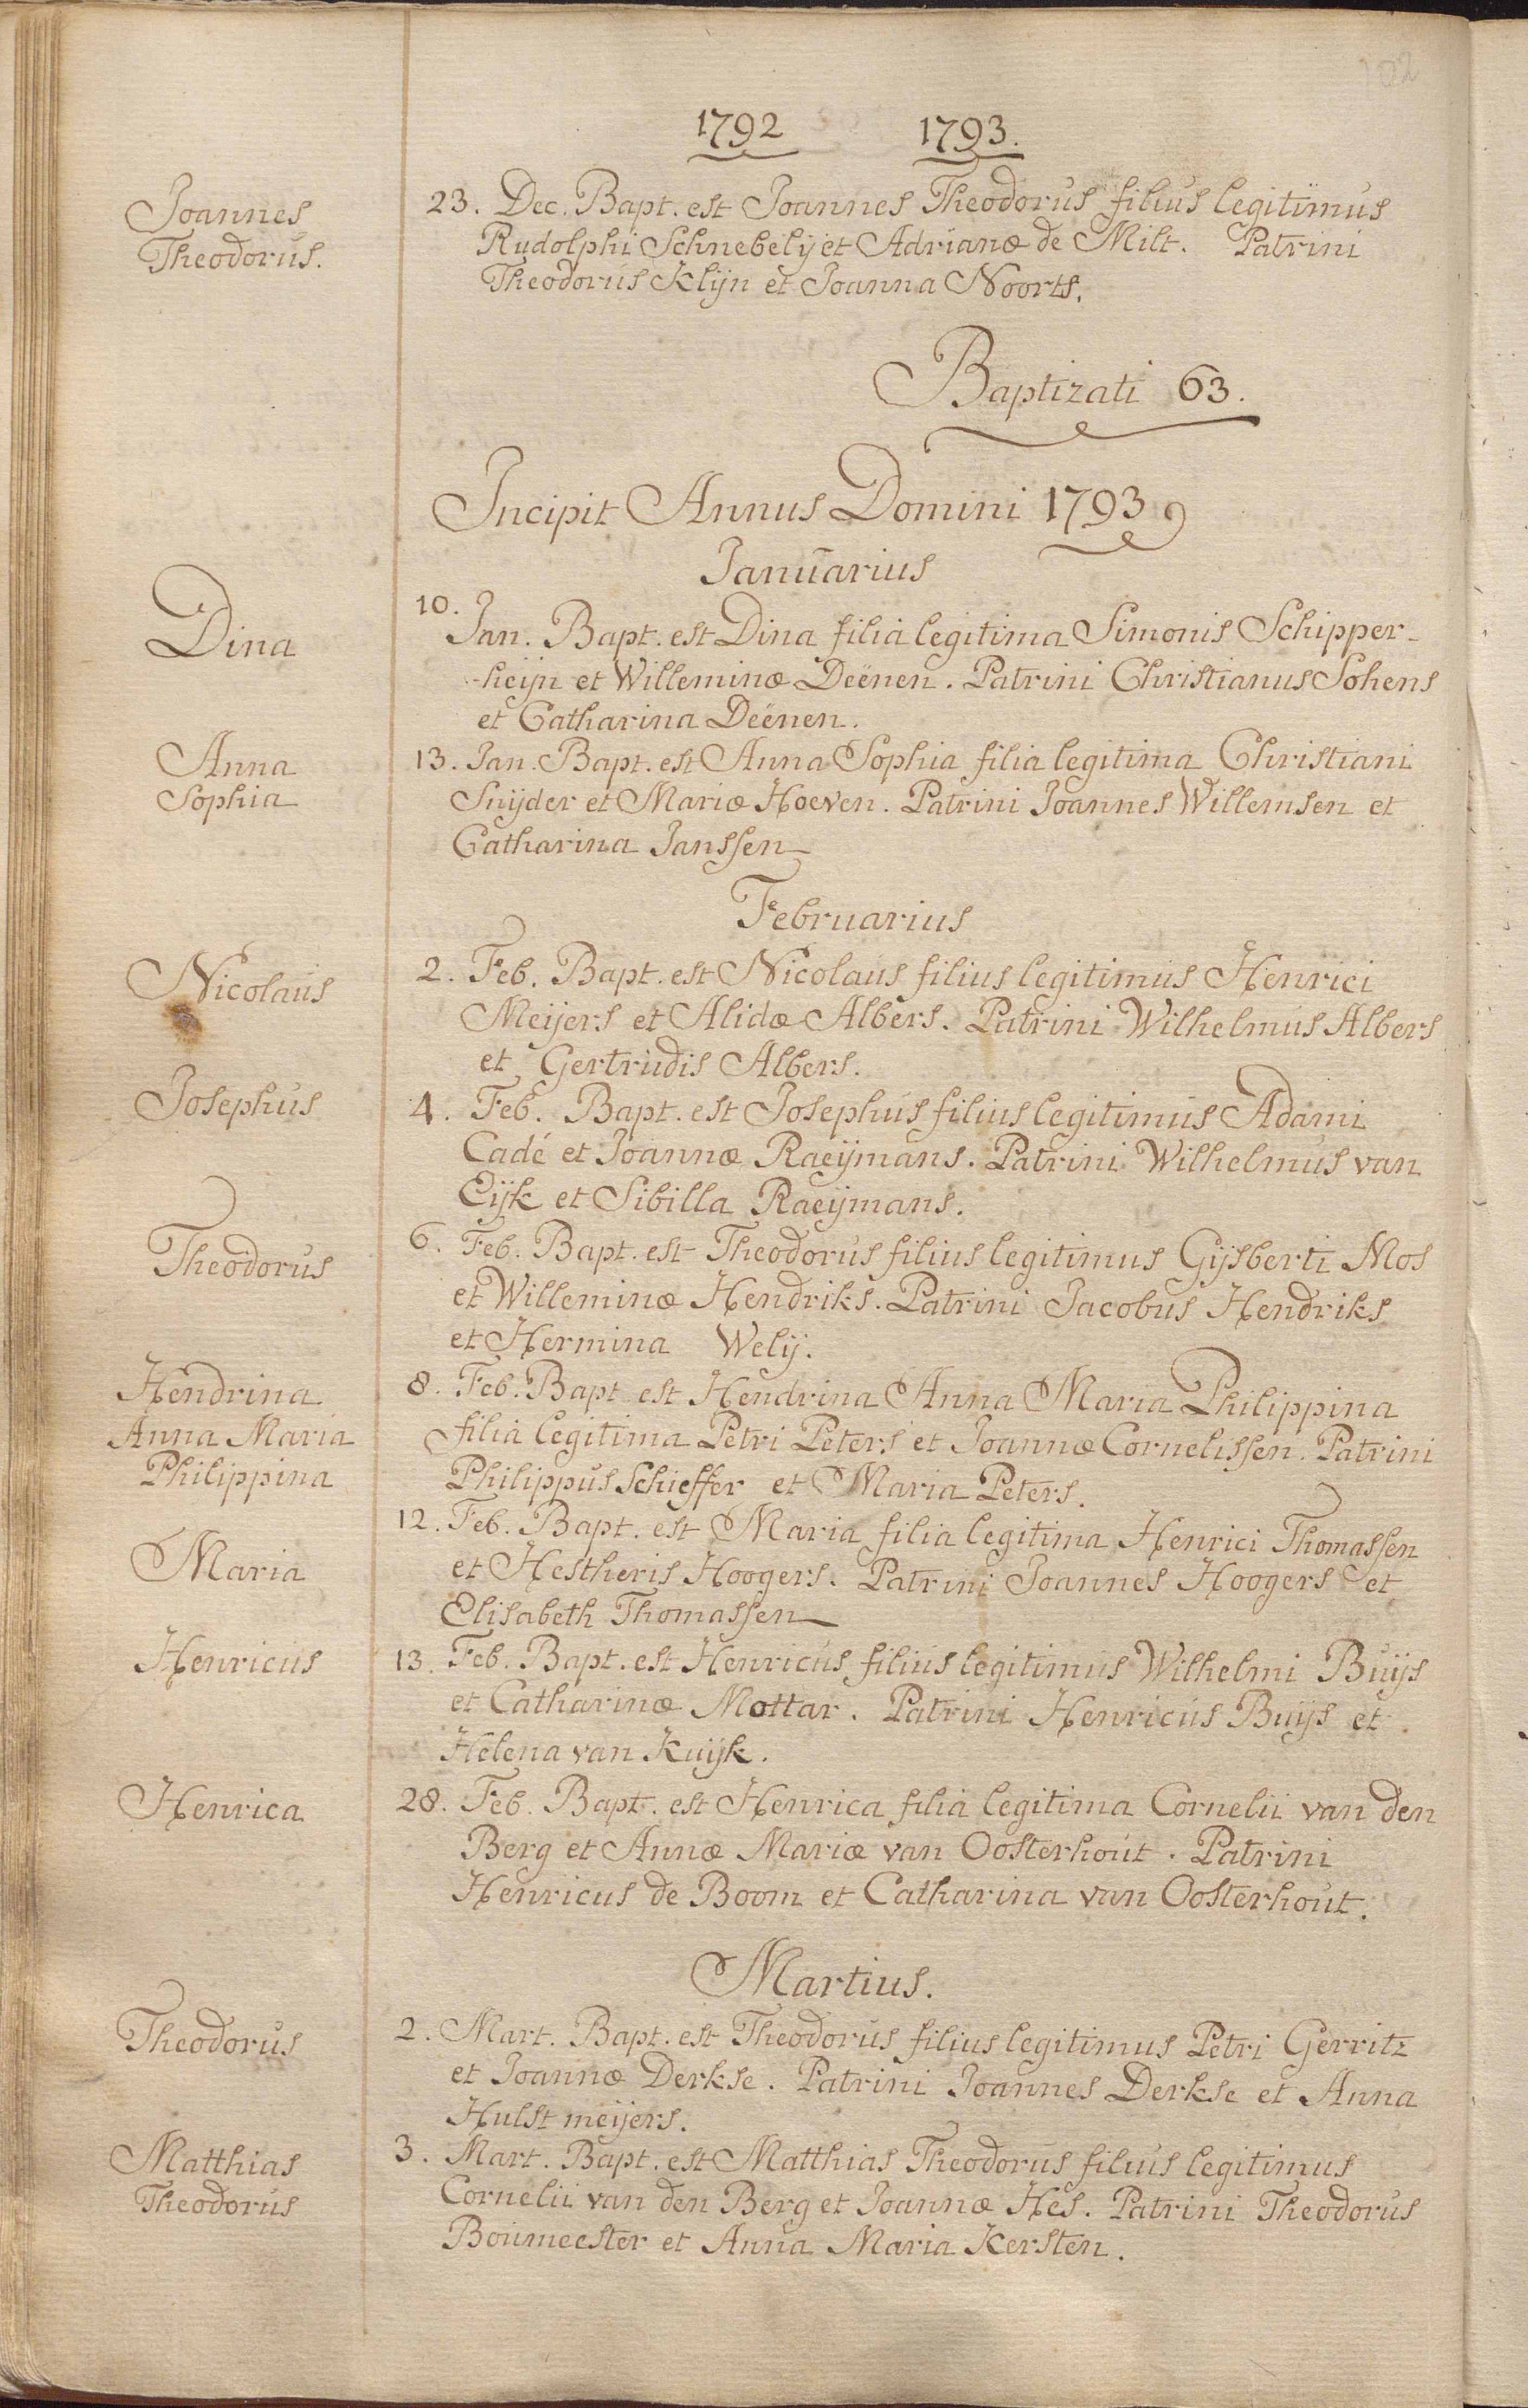 102
1792 1793.
Joannes
Theodorus.
23. Dec. Bapt. est Joannes Theodorus filius legitimus
Rudolphi Schnebelij et Adrianæ de Milt. Patrini
Theodorus Klijn et Joanna Noorts.
Baptizati 63.
Incipit Annus Domini 1793
Januarius
Dina
10.
Jan. Bapt. est Dina filia legitima Simonis Schipper-
-heijn et Willeminæ Deënen. Patrini Christianus Sohens
et Catharina Deënen.
Anna
Sophia
13. Jan. Bapt. est Anna Sophia filia legitima Christiani
Snijder et Mariæ Hoeven. Patrini Joannes Willemsen et
Catharina Janssen
Februarius
Nicolaus
2. Feb. Bapt. est Nicolaus filius legitimus Henrici
Meijers et Alidæ Albers. Patrini Wilhelmus Albers
et Gertrudis Albers.
Josephus
4. Feb. Bapt. est Josephus filius legitimus Adami
Cadé et Joannæ Raeijmans. Patrini Wilhelmus van
Eijk et Sibilla Raeijmans.
Theodorus
6. Feb. Bapt. est Theodorus filius legitimus Gijsberti Mos
et Willeminæ Hendriks. Patrini Jacobus Hendriks
et Hermina Welij.
Hendrina
Anna Maria
Philippina
8. Feb. Bapt est Hendrina Anna Maria Philippina
filia legitima Petri Peters et Joannæ Cornelissen. Patrini
Philippus Schieffer et Maria Peters.
Maria
12. Feb. Bapt. est Maria filia legitima Henrici Thomassen
et Hestheris Hoogers. Patrini Joannes Hoogers et
Elisabeth Thomassen
Henricus
13. Feb. Bapt. est Henricus filius legitimus Wilhelmi Buijs
et Catharinæ Mottar. Patrini Henricus Buijs et
Helena van Kuijk.
Henrica
28. Feb. Bapt. est Henrica filia legitima Cornelii van den
Berg et Annæ Mariæ van Oosterhout. Patrini
Henricus de Boom et Catharina van Oosterhout.
Martius.
Theodorus
2. Mart. Bapt. est Theodorus filius legitimus Petri Gerritz
et Joannæ Derkse. Patrini Joannes Derkse et Anna
Hulstmeijers.
Matthias
Theodorus
3. Mart. Bapt. est Matthias Theodorus filius legitimus
Cornelii van den Berg et Joannæ Hes. Patrini Theodorus
Boumeester et Anna Maria Kersten.